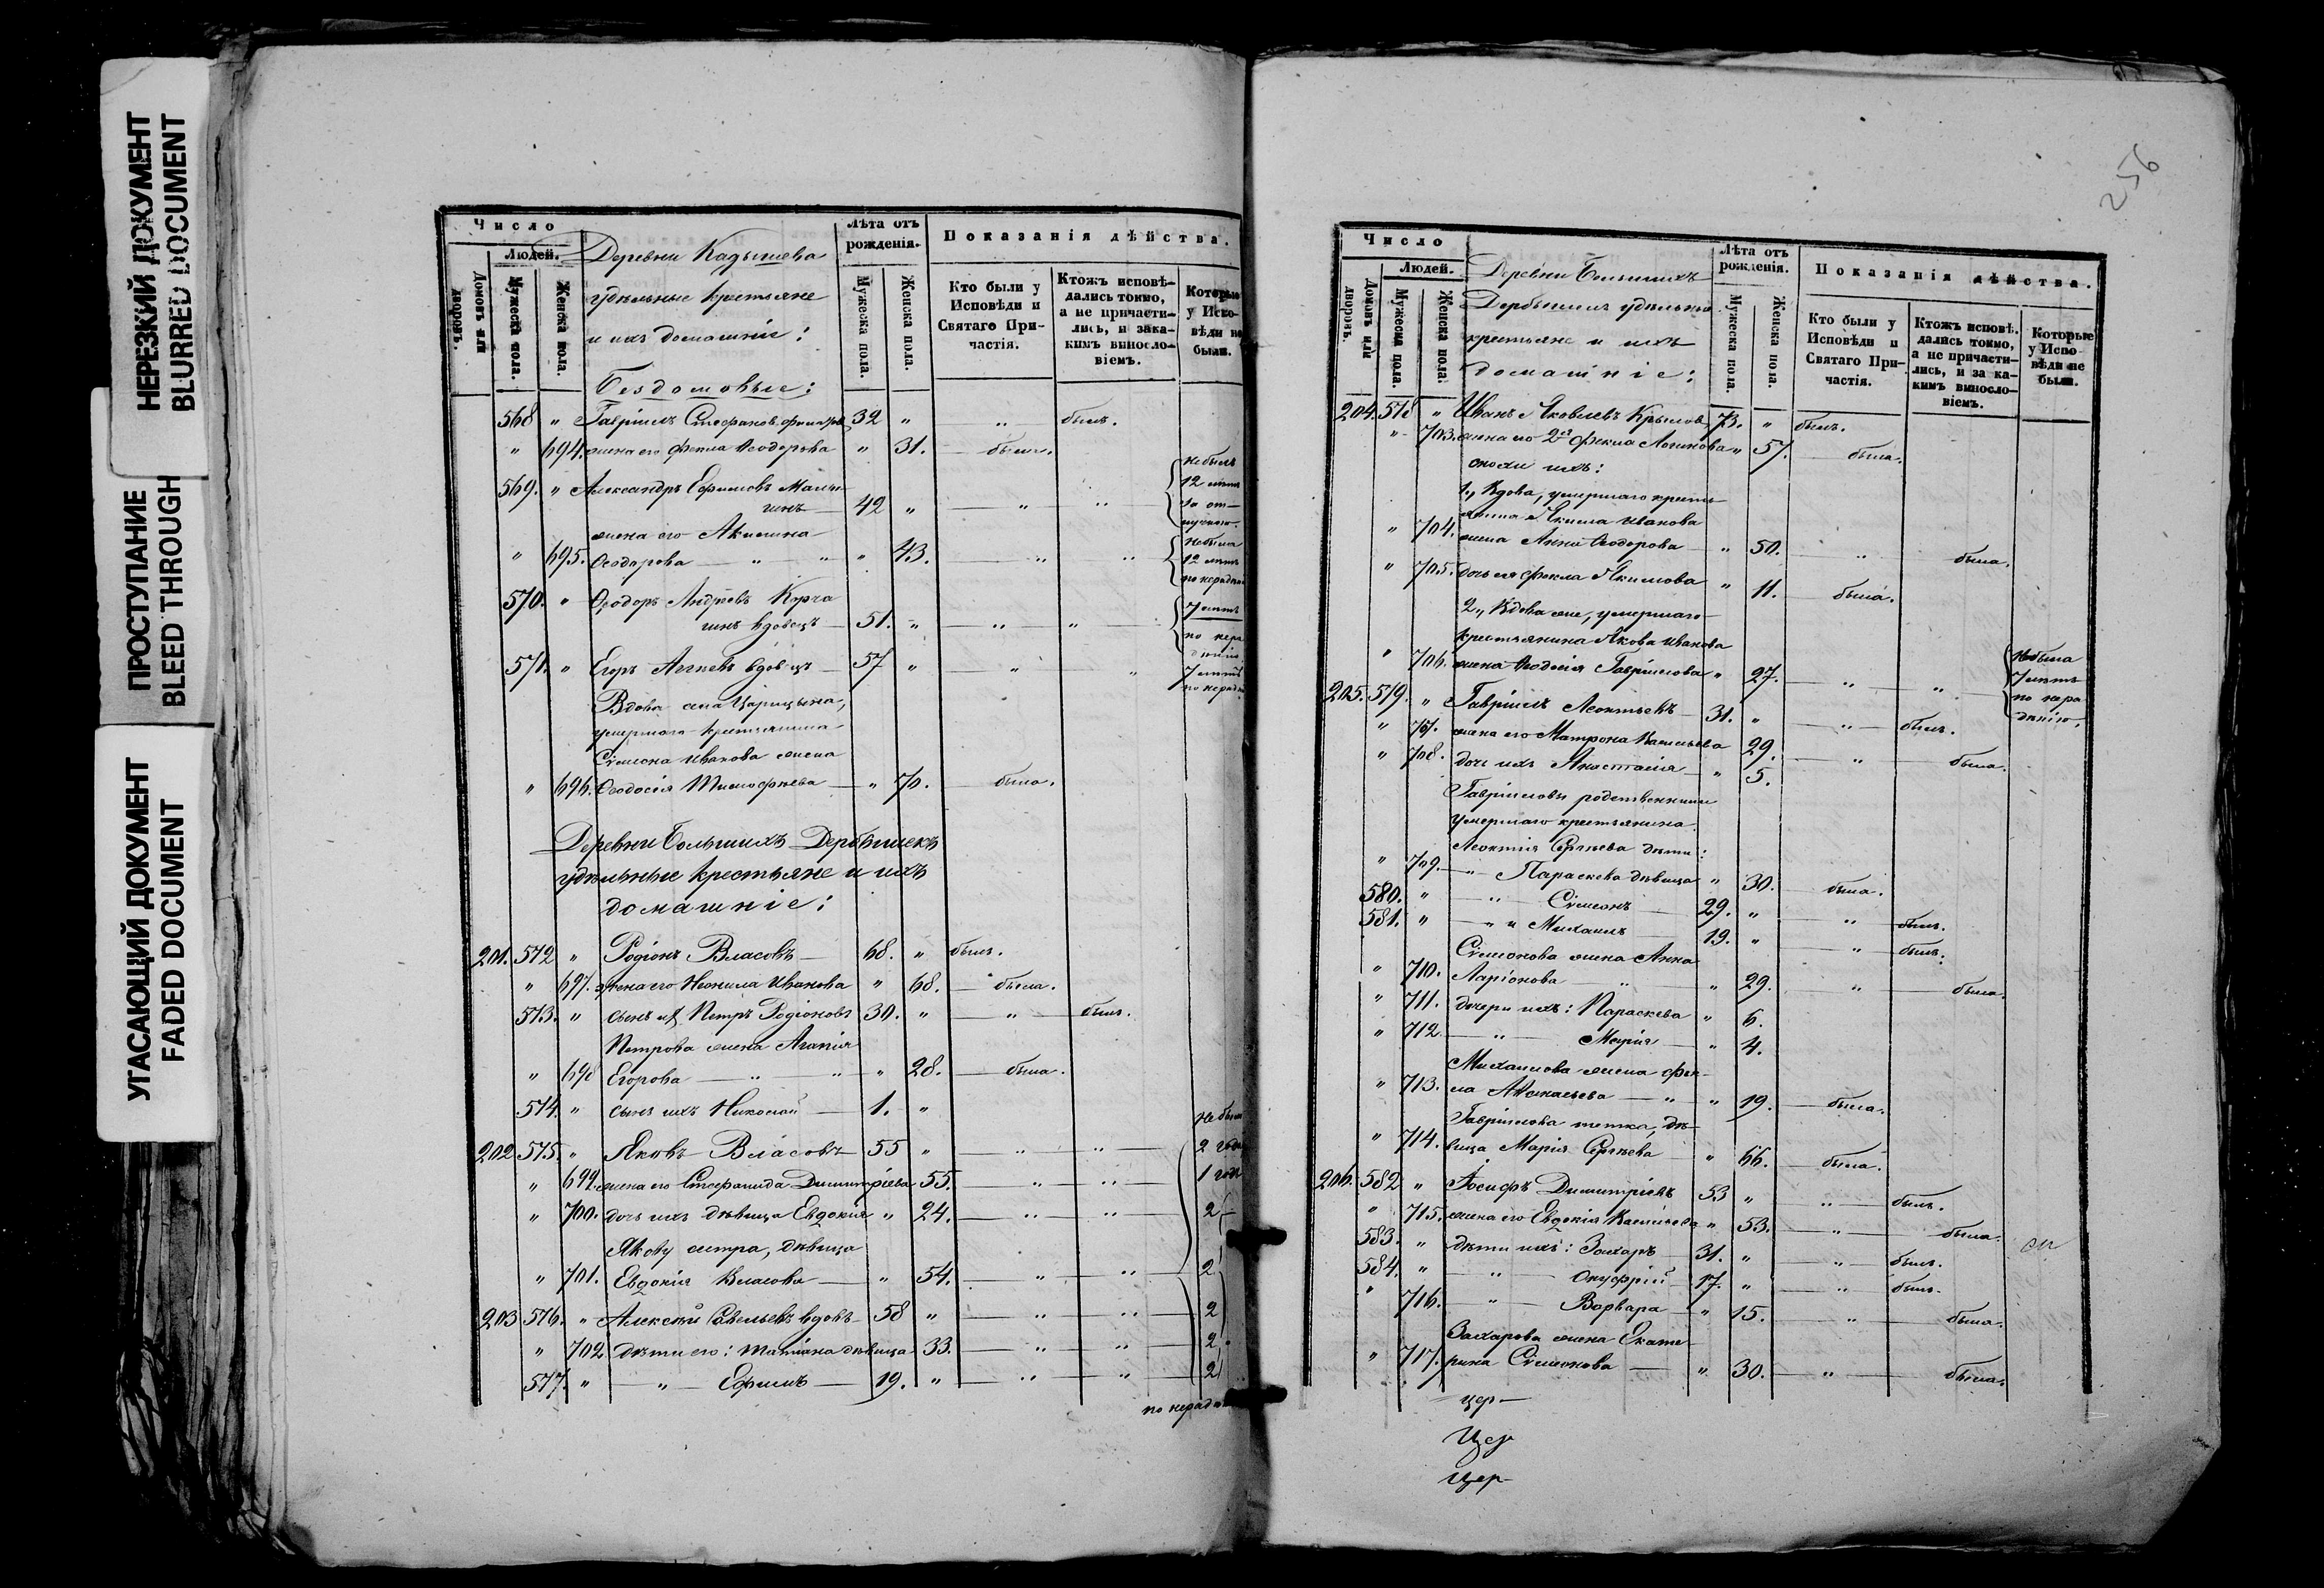 НЕРЕЗКИЙ ДОКУМЕНТ
BLURRED DOCUMENT
ПРОСТУПАНИЕ
BLEED THROUGH
УГАСАЮЩИЙ ДОКУМЕНТ
FADED DOCUMENT
Число
Людей.
Домовъ или дворовъ.
Мужеска пола.
Женска пола.
Деревни Кадышева
удѣльные крестьяне
и ихъ домашніе:
Бездомовые:
Лѣта отъ рожденія.
Мужеска пола.
Женска пола.
Показанія дѣйства.
Кто были у Исповѣди и Святаго Причастія.
Ктожъ исповѣдались токмо, а не причастились, и за какимъ винословіемъ.
Которые у Исповѣди не были.
568 " Гавріилъ Стефановъ 32 " " былъ.
" 694. жена его Фекла Ѳеодорова " 31. была.
569. " Александръ Ефимовъ
42 " " " не былъ 12 лѣтъ
жена его Акилина
" 695. Ѳеодорова " " " 43. " " не была 12 лѣтъ по нерадѣн
570. " Ѳеодоръ Андреевъ Курча
гинъ вдовецъ 51. " " " 7 лѣтъ по нера дѣнію
571. " Егоръ вдовецъ 57 " " " 7 лѣтъ по нерадѣ
Вдова
умершаго крестьянина
Сѵмеона Иванова жена
" 696. Ѳеодосія Тимофѣева " 70. была.
Деревни Большихъ Дербышекъ
удѣльные крестьяне и ихъ
домашніе:
201. 572 " Родіонъ Власовъ 68. " былъ.
" 697. жена его Неонила Иванова " 68. была.
573. " сынъ ихъ Петръ Родіоновъ 30. " " былъ.
Петрова жена Агапія
" 698 Егорова " " " 28. была.
574. " сынъ ихъ Николай 1. "
202 575. " Яковъ Власовъ 55 " " " не былъ 2 года
" 699. жена его Стефанида Димитріева 55. " " 1 годъ
" 700. дочь ихъ дѣвица Евдокія " 24. " " 2
Якову сестра, дѣвица
" 701. Евдокія Власова " 54. " " 2
203 576. " Алексѣй Савельевъ вдовъ 58 " " " 2
" 702. дѣти его: Татіана дѣвица 33. " " 2
577. " " Ефимъ 19. " " " 2
по нерадѣн
256
Число
Людей.
Домовъ или дворовъ.
Мужеска пола.
Женска пола.
Деревни Большихъ
Дербышекъ удѣльные
крестьяне и ихъ
домашніе:
Лѣта отъ рожденія.
Мужеска пола.
Женска пола.
Показанія дѣйства.
Кто были у Исповѣди и Святаго Причастія.
Ктожъ исповѣдались токмо, а не причастились, и за какимъ винословіемъ.
Которые у Исповѣди не были.
204. 578 " Иванъ Яковлевъ Крыловъ 73. " былъ.
" 703. жена его 2я Фекла Логинова " 57. была.
снохи ихъ:
1., Вдова, умершаго кресть
янина Якима Иванова
" 704. жена Анна Ѳеодорова " 50. " была.
" 705. дочь ея Фекла Якимова " 11. была.
2., Вдова же, умершаго
крестьянина Якова Иванова
" 706. жена Ѳеодосія Гавріилова " 27. " " не была 7 лѣтъ по нера дѣнію.
205. 579. " Гавріилъ Леонтьевъ 31. " " былъ.
" 707. жена его Матрона Васильева 29. " была.
" 708. дочь ихъ Анастасія " 5.
Гавріиловы родственники
умершаго крестьянина
Леонтія Сергѣева дѣти:
" 709. " Параскева дѣвица " 30. была.
580. " " Сѵмеонъ 29. " " былъ.
581. " " " Михаилъ 19. " " былъ.
Сѵмеонова жена Анна
" 710. Ларіонова " " 29. " была.
" 711. дочери ихъ: Параскева " 6.
" 712 " Марія " 4.
Михаилова жена Фек-
" 713. ла Афанасьева " " 19. была.
Гавріилова тетка, дѣ-
" 714. вица Марія Сергѣева " 66. была.
206. 582 " Іосифъ Димитріевъ 53 " " былъ.
" 715. жена его Евдокія Васильева " 53. " была.
583. " дѣти ихъ: Захаръ 31. " " былъ.
584. " " Онуфрій 17. " " былъ.
" 716. " Варвара " 15. " была.
Захарова жена Екате
" 717. рина Сѵмеонова " 30. " была.
цер
Цер
Цер